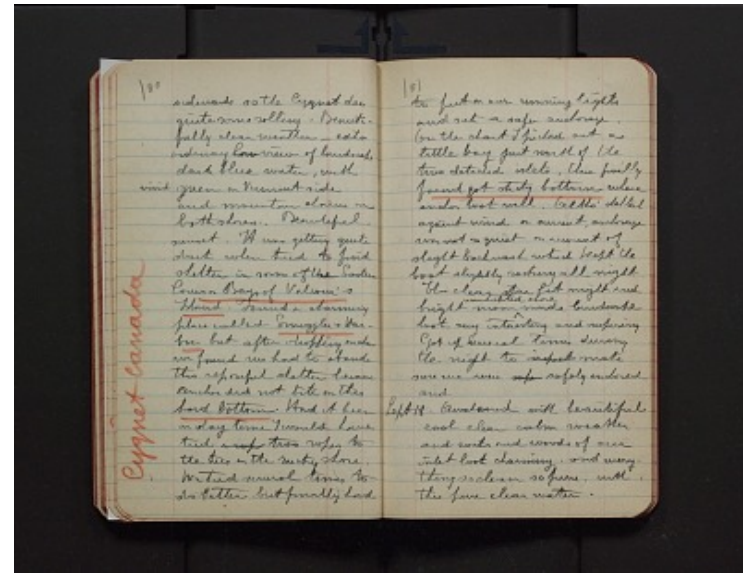 100
sidewards so the Cygnet des
quite some rolling. Beauti-
fully clear weather - extra
ordinary view of
dark blue water, with
vivid green on Vermont side
and mountain on
both shores. Beautiful
sunset. It was getting quite
dark when tried to find
shelter in some of the Eastern
Cover Bays of Valcour's
Island. Found a charming
place called Smuggler's Har-
bor but after dropping anchor
we found we had to abandon
this shelter because
anchor did not bite on this
hard bottom. Had it been
in day time I would have
tried two ropes to
the trees on the shore.
We tried several times to
do better but finally had
Cygnet Canada
101
to put on our running lights
and set a safer anchorage.
On the chart I picked out a
little bay just north of the
two detached islets, there finally
found got sticky bottom where
anchor bit well. Altho
against wind or current, anchorage
was not quiet on account of
slight backwash which kept the
boat slightly all night
The clear star lit night and
bright moon made
look very interesting and
Got up several times during
the night to make
sure we were safely anchored
and
Sept 18 Awakened with beautiful
cool clear calm weather
and rocks and woods of our
inlet look charming, and every-
thing so clean so pure, with
the pure clear water.